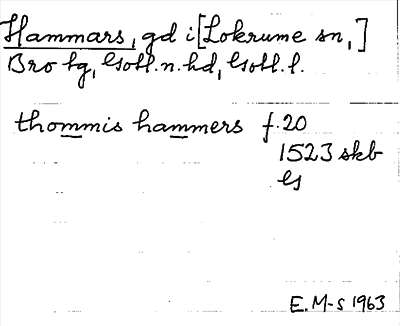 Hammars, gd i [Lokrume sn,]
Bro tg, Gotl. n. hd, Gotl. l.
thommis hammers f. 20
1523 skb
G
E. M-s 1963